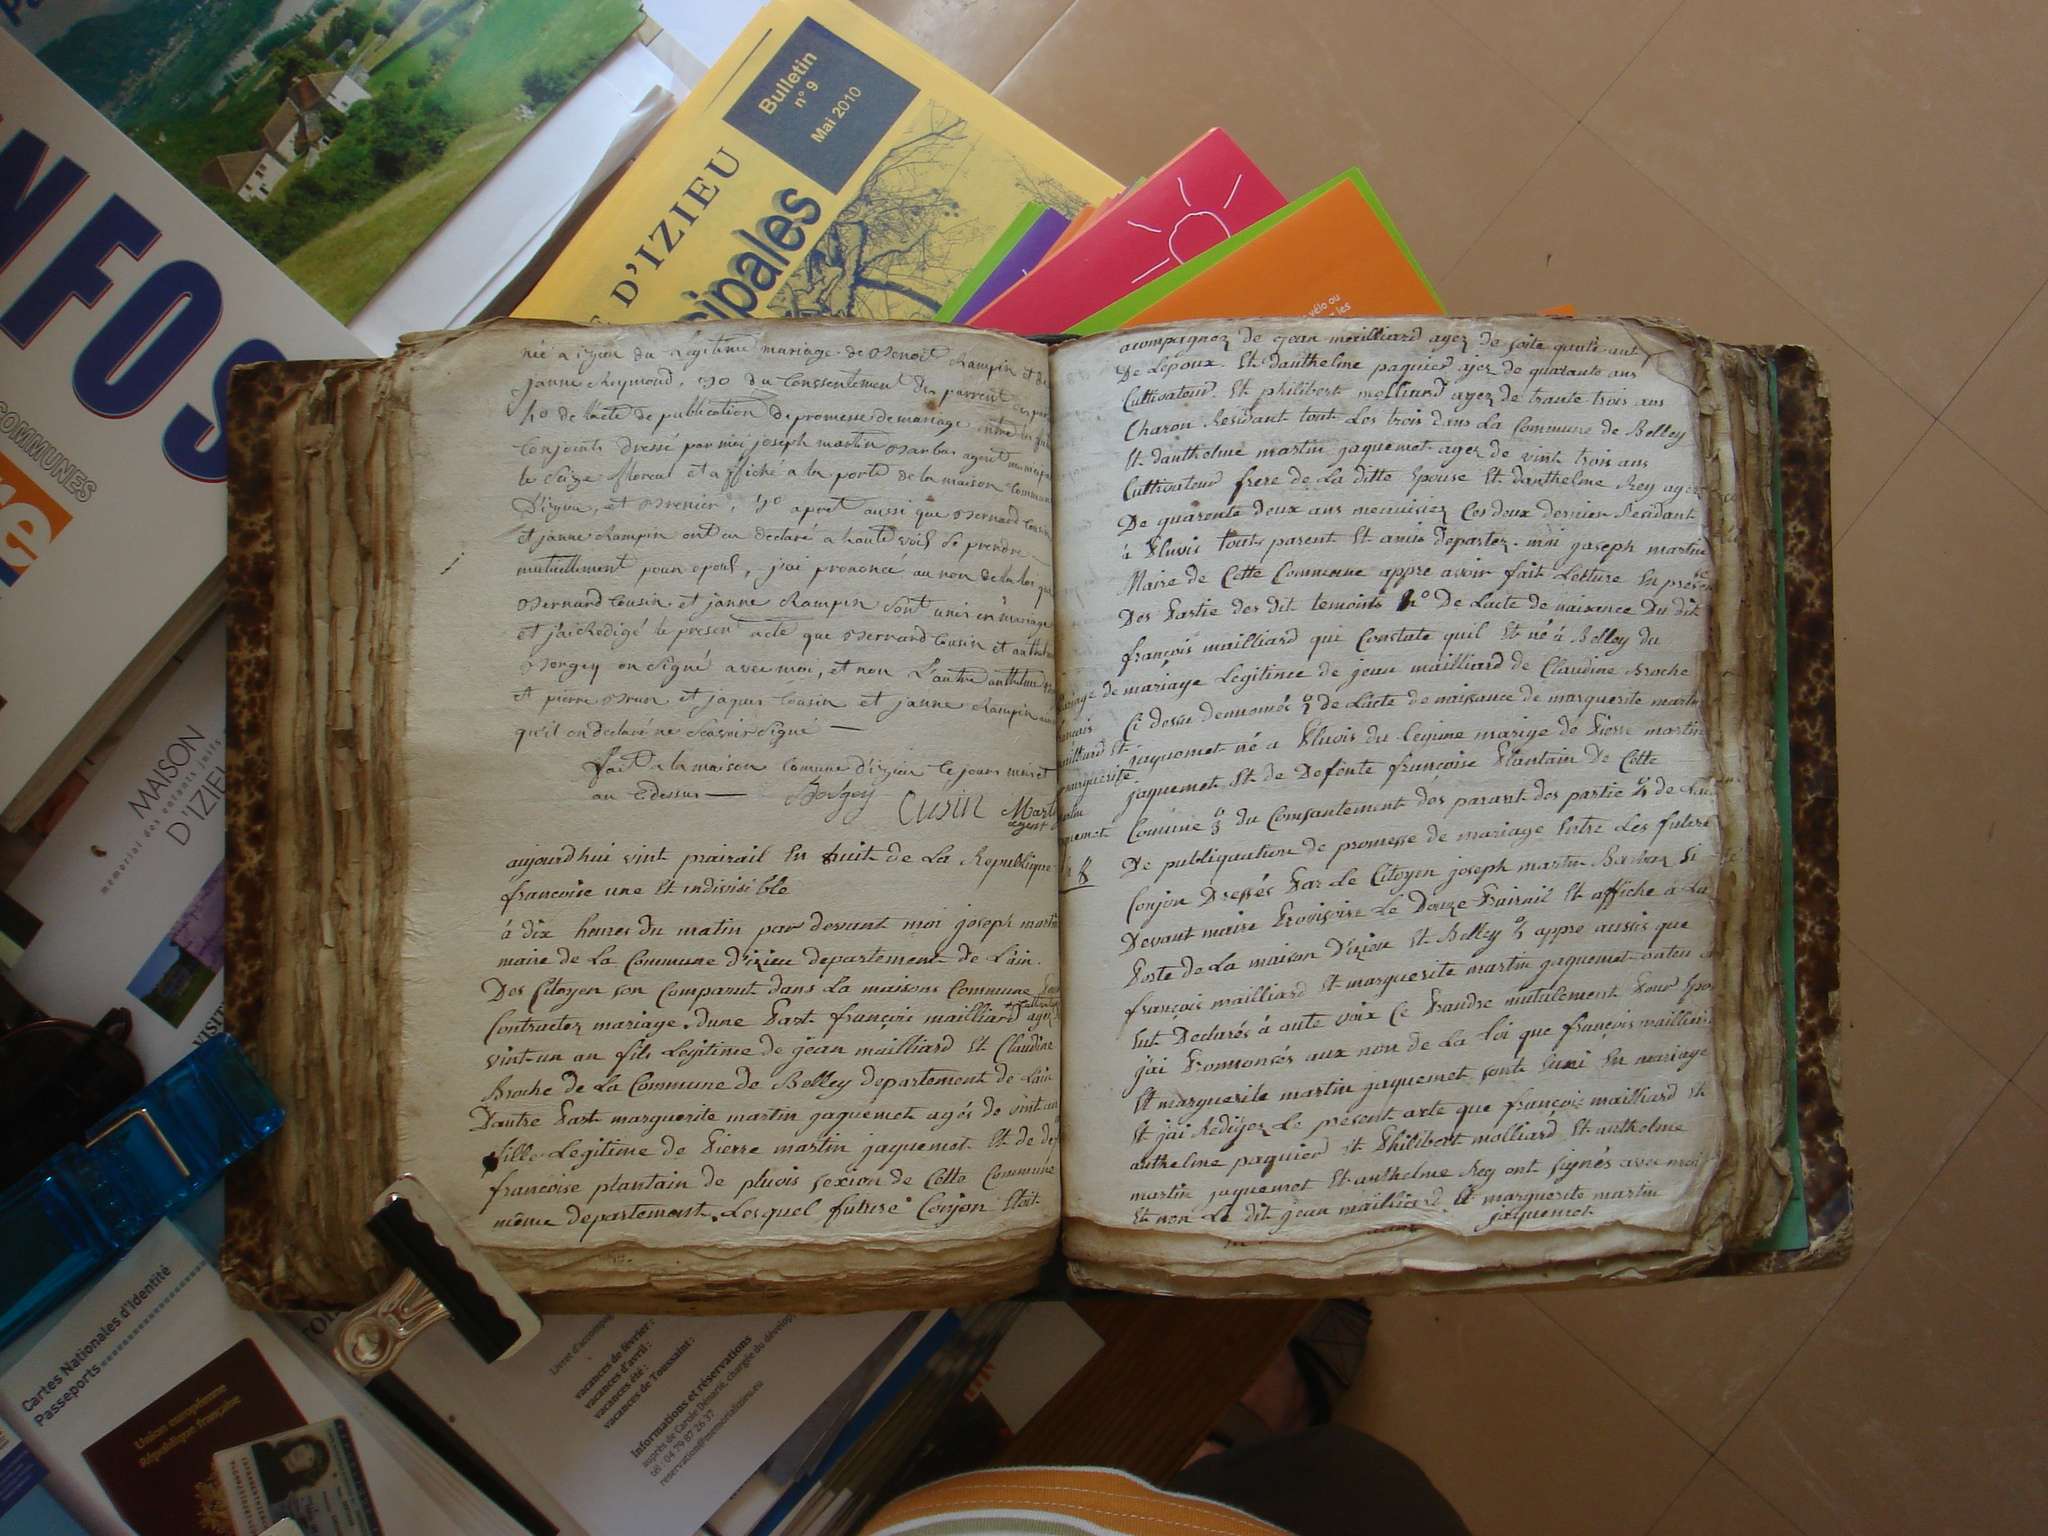 NFOS
COMMUNES
Bulletin
n° 9
Mai 2010
D'IZIEU
cipales
née a izieu du Légitime mariage de Benoit Rampin et de
Janne Reymond, 3º du Conssentement des parrent
4º de L'acte de publication de promesse de mariage entre les
Conjoints dressé par moi joseph martin Barbas agent
le Seize floreal et affiché a la porte de la maison Commune
D'izieu, et Brenier, 5º apret aussi que Bernard Cousin
et janne Rampin ont eu declaré a haute voix se prendre
mutuellement pour epoux, j'ai prononcé au non de la loi que
Bernard Cousin et janne Rampin sont unis en mariage
et j'ai Redigé le present acte que Bernard Cousin et anthelme
Bergey on signé avec moi, et non L'autre anthelme
et pierre Brun et jaques Cousin et janne Rampin
qu'il on declaré ne scavoir signé —
fait a la maison comune d'izieu le jours mois et
an Cdessus — Bergey
Cusin Martin
agent
aujourdhui vint prairail En huit de La Republique
francoise une Et indivisible
à dix heures du matin par devant moi joseph martin
maire de La Commune d'izieu departement de L'ain.
Des Citoyen son Comparut dans La maisons Commune Pour
Contracter mariage. dune Part françois mailliard agez
vint-un an fils Legitime de jean mailliard Et Claudine
Broche de La Commune de Belley departement de L'ain
Dautre Part marguerite martin jaquemet agés de vint
fille Legitime de Pierre martin jaquemet Et de
francoise plantain de pluvis sexion de Cette Commune
même departement. Lesquel future Conjon Etoit
acompagnez de jean mailliard agez de soite quatre ant
De Lepoux. Et danthelme paquier ajez de quarante ans
Cultivateur. Et philibert molliard agez de trante trois ans
Charon Residant tout Les trois dans La Commune de Belley
Et danthelme martin jaquemet agez de vint trois ans
Cultivateur frere de La ditte Epouse Et danthelme Rey agez
De quarente doux ans menuisiez Ces doux dernier Residant
à Pluvis touts parent Et amis departez. moi joseph martin
Maire de Cette Commune appre avoir fait Lecture En presen
Des Partie des dit temoints 1º De Lacte de naisance Du dit
françois mailliard qui Constate quil Et né à Belley du
mariaye Legitince de jean mailliard de Claudine Broche
Ci dessu denomés 2º de Lacte de naissance de marguerite martin
jaquemet né a Pluvis du legime mariye de Pierre martin
jaquemet Et de Defonte françoise Plantain De Cette
Comune 3º du Consantement des parant des partie 4º de
De publiquation de promesse de mariage Entre Les future
Conjon Dressés Par Le Citoyen joseph martin Barbaz
Devant maire Provisoire Le Douze Prairail Et affiche à La
Porte de La maison D'izieu Et Belley 5º appre aussis que
françois mailliard Et marguerite martin jaquemet onteu
Eut Declarés à aute voix Ce Prandre mutalement Pour
j'ai Prononsés aux non de La Loi que françois mailliard
Et marguerite martin jaquemet sont Euni En mariage
Et j'ai Redigez Le present acte que françois mailliard Et
anthelme paquierd Et Philibert molliard Et anthelme
martin jaquemet Et anthelme Rey ont signés avec moi
Et non Le dit jean mailliard. Et marguerite martin
jaquemet
MAISON
D'IZIEU
mémorial des enfants juifs
Cartes Nationales d'Identité
Passeports
Union européenne
République française
vacances de février :
vacances d'avril :
vacances été :
vacances de Toussaint :
Informations et réservations
auprès de Carole Demarié, chargée du
tél : 04 79 87 26 37